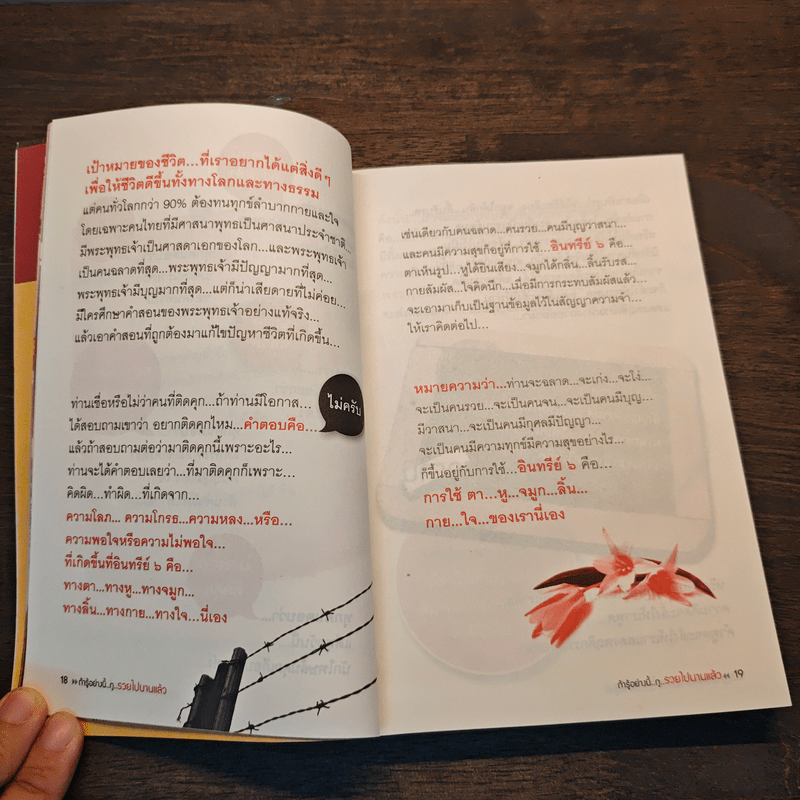 เป้าหมายของชีวิต...ที่เราอยากได้แต่สิ่งดีๆ
เพื่อให้ชีวิตดีขึ้นทั้งทางโลกและทางธรรม
แต่คนทั่วโลกกว่า 90% ต้องทนทุกข์ลำบากกายและใจ
โดยเฉพาะคนไทยที่มีศาสนาพุทธเป็นศาสนาประจำชาติ...
มีพระพุทธเจ้าเป็นศาสดาเอกของโลก...และพระพุทธเจ้า
เป็นคนฉลาดที่สุด...พระพุทธเจ้ามีปัญญามากที่สุด...
พระพุทธเจ้ามีบุญมากที่สุด...แต่ก็น่าเสียดายที่ไม่ค่อย...
มีใครศึกษาคำสอนของพระพุทธเจ้าอย่างแท้จริง...
แล้วเอาคำสอนที่ถูกต้องมาแก้ไขปัญหาชีวิตที่เกิดขึ้น...
ท่านเชื่อหรือไม่ว่าคนที่ติดคุก...ถ้าท่านมีโอกาส...
ได้สอบถามเขาว่า อยากติดคุกไหม...คำตอบคือ...
ไม่ครับ
แล้วถ้าสอบถามต่อว่ามาติดคุกนี้เพราะอะไร...
ท่านจะได้คำตอบเลยว่า...ที่มาติดคุกก็เพราะ...
คิดผิด...ทำผิด...ที่เกิดจาก...
ความโลภ... ความโกรธ...ความหลง...หรือ...
ความพอใจหรือความไม่พอใจ...
ที่เกิดขึ้นที่อินทรีย์ ๖ คือ...
ทางตา...ทางหู...ทางจมูก...
ทางลิ้น...ทางกาย...ทางใจ...นี่เอง
18 ›› ถ้ารู้อย่างนี้..กู..รวยไปนานแล้ว
เช่นเดียวกับคนฉลาด...คนรวย...คนมีบุญวาสนา...
และคนมีความสุขก็อยู่ที่การใช้...อินทรีย์ ๖ คือ...
ตาเห็นรูป...หูได้ยินเสียง...จมูกได้กลิ่น...ลิ้นรับรส...
กายสัมผัส...ใจคิดนึก...เมื่อมีการกระทบสัมผัสแล้ว...
จะเอามาเก็บเป็นฐานข้อมูลไว้ในสัญญาความจำ...
ให้เราคิดต่อไป...
หมายความว่า...ท่านจะฉลาด...จะเก่ง...จะโง่...
จะเป็นคนรวย...จะเป็นคนจน...จะเป็นคนมีบุญ...
มีวาสนา...จะเป็นคนมีกุศลมีปัญญา...
จะเป็นคนมีความทุกข์มีความสุขอย่างไร...
ก็ขึ้นอยู่กับการใช้...อินทรีย์ ๖ คือ...
การใช้ ตา...หู...จมูก...ลิ้น...
กาย...ใจ...ของเรานี่เอง
ถ้ารู้อย่างนี้..กู..รวยไปนานแล้ว ‹‹ 19